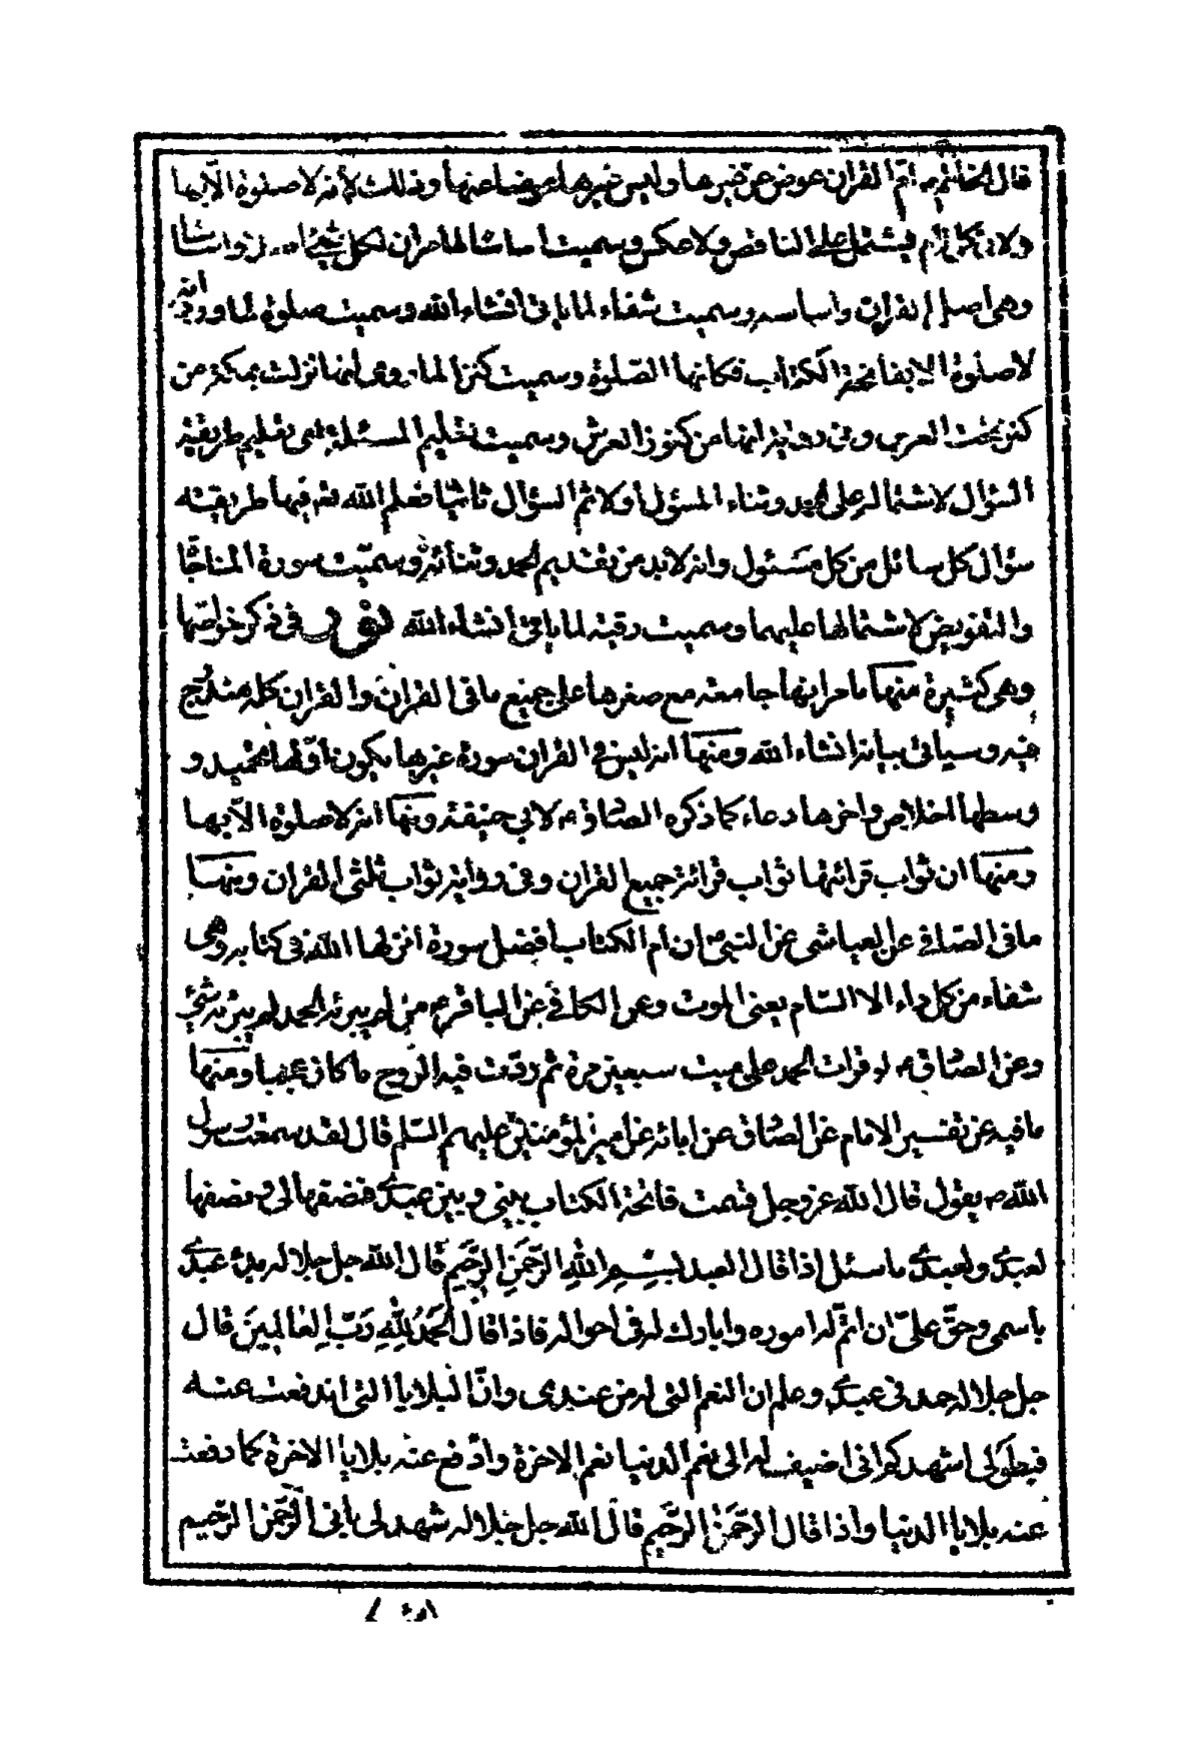 قال الخاتم ص امّ القران عوض عن غيرها وليس غيرها عوضا عنها وذلك لأنه لا صلوة الّا بها
ولان كل تام يشتمل على الناقص ولا عكس وسميت اساسا لما مر ان لكل شئ اساسا
وهى اصل القران واساسه وسميت شفاء لما ياتى انشاء الله وسميت صلوة لما ورد انه
لا صلوة الا بفاتحة الكتاب فكانها الصلوة وسميت كنزا لما روى انها نزلت بمكة من
كنز تحت العرش وفى رواية انها من كنوز العرش وسميت تعليم المسئلة فهى تعليم طريقة
السؤال لاشتماله على تحميد وثناء المسؤل اولا ثم السؤال ثانيا فعلم الله فيها طريقته
سؤال كل سائل من كل مسئول وانه لابد من تقديم الحمد وثنائه وسميّت سورة المناجاة
والتفويض لاشتمالها عليهما وسميت رقية لما ياتى انشاء الله فى ذكر خواصّها
وهى كثيرة منها ما مر انها جامعة مع صغرها على جميع ما فى القران والقران كله مندرج
فيه وسياتى بيانه انشاء الله ومنها انه ليس فى القران سورة غيرها يكون اوّلها تحميد و
وسطها اخلاص واخرها دعاء كما ذكره الصادق ع لابي حنيفة ومنها انه لا صلوة الّا بها
ومنها ان ثواب قرائتها ثواب قرائة جميع القران وفى رواية ثواب ثلثى القران ومنها
ما فى الصافى عن العياشى عن النبى ص ان ام الكتاب افضل سورة انزلها الله فى كتابه وهى
شفاء من كل داء الا السام يعنى الموت وعن الكافى عن الباقر ع من لم يبرئه الحمد لم يبرئه شئ
وعن الصادق ع لو قرات الحمد على ميت سبعين مرة ثم ردّت فيه الروح ما كان عجبا ومنها
ما فيه عن تفسير الامام عن الصادق عن ابائه عن امير المؤمنين عليهم السلم قال لقد سمعت رسول
الله ص يقول قال الله عز وجل قسمت فاتحة الكتاب بينى وبين عبدى فنصفها لى ونصفها
لعبدى ولعبدى ما سئل اذا قال العبد بِسْمِ اللّهِ الرَّحمَنِ الرَّحيم قال الله جل جلاله بدء عبدى
باسمى وحقّ علىّ ان اتمّ له اموره وابارك له فى احواله فاذا قال الحَمدُ لِلّهِ رَبّ العَالَمينَ قال
جل جلاله حمدنى عبدى وعلم ان النعم التى له من عندى وانّ البلايا التى اندفعت عنه
فبطولى اشهدكم انى اضيف له الى نعم الدنيا نعم الاخرة وادفع عنه بلايا الاخرة كما دفعت
عنه بلايا الدنيا واذا قال الرّحمن الرّحيم قال الله جل جلاله شهد لى بانى الرّحمن الرّحيم